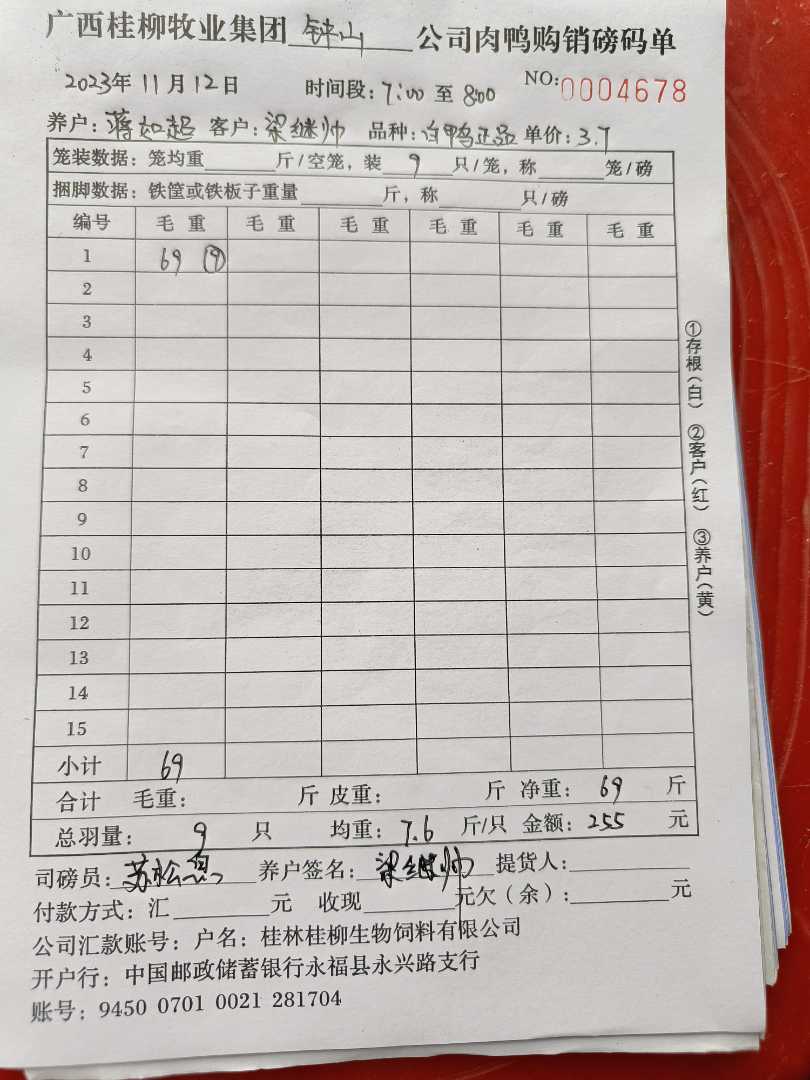 广西桂柳牧业集团 钟山 公司肉鸭购销磅码单
2023年 11月 12日 时间段: 7:00 至 8:00 NO:0004678
养户: 蒋如超 客户: 梁继帅 品种: 白鸭正品 单价: 3.7
笼装数据: 笼均重 斤/空笼, 装 9 只/笼, 称 笼/磅
捆脚数据: 铁筐或铁板子重量 斤, 称 只/磅
编号 毛重 毛重 毛重 毛重 毛重 毛重
1 69 ⑨
2
3
4
5
6
7
8
9
10
11
12
13
14
15
小计 69
合计 毛重: 斤 皮重: 斤 净重: 69 斤
总羽量: 9 只 均重: 7.6 斤/只 金额: 255 元
司磅员: 苏松 养户签名: 梁继帅 提货人:
付款方式: 汇 元 收现 元欠(余): 元
公司汇款账号: 户名: 桂林桂柳生物饲料有限公司
开户行: 中国邮政储蓄银行永福县永兴路支行
账号: 9450 0701 0021 281704
①存根(白) ②客户(红) ③养户(黄)